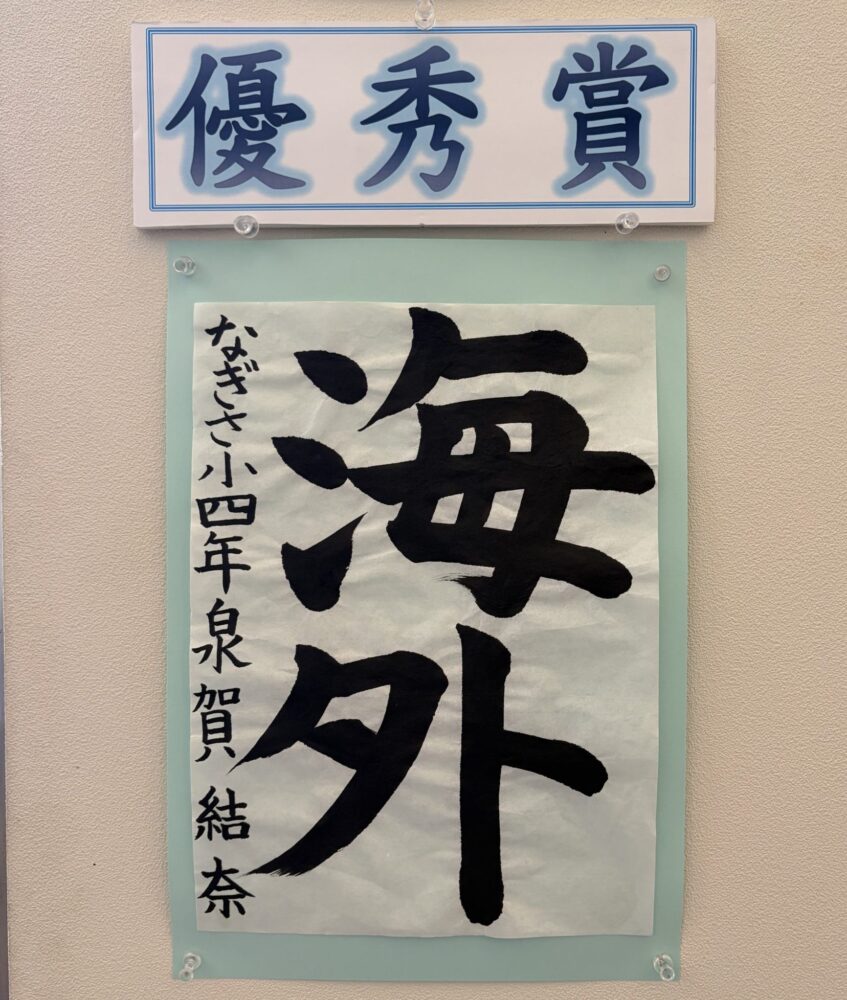 優秀賞
海外
なぎさ小四年泉賀結奈